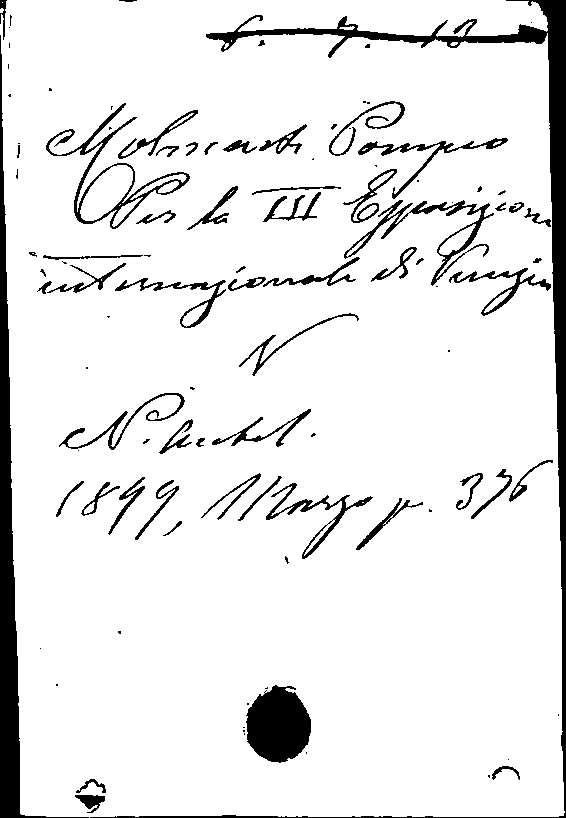 6. 7. 13
Molmenti Pompeo
Per la III Esposizione
internazionale di Venezia
N. Antol.
1899, Marzo p. 376